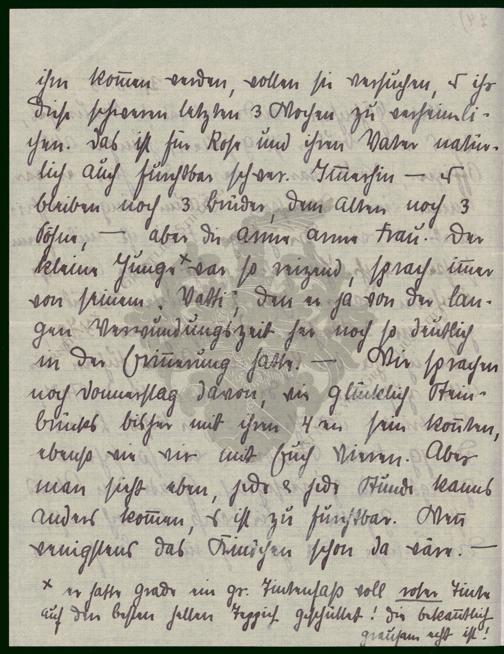 ihm kommen werden, wollen sie versuchen, es ihr
diese schweren letzten 3 Wochen zu verheimli-
chen. Das ist für Rose und ihren Vater natür-
lich auch furchtbar schwer. Immerhin — es
bleiben noch 3 Brüder, dem Alten noch 3
Söhne, — aber die arme, arme Frau. Der
kleine Junge x war so reizend, sprach immer
von seinem „Vatti“, den er ja von der lan-
gen Verwundungszeit her noch so deutlich
in der Erinnerung hatte. — Wir sprachen
noch Donnerstag davon, wie glücklich Stein-
brücks bisher mit ihren 4en sein konnten,
ebenso wie wir mit Euch Vieren. Aber
man sieht eben, jede & jede Stunde kanns
anders kommen, es ist zu furchtbar. Wenn
wenigstens das Kindchen schon da wäre. —
x er hatte grade ein gr. Tintenfaß voll roter Tinte
auf den besten hellen Teppich geschüttet! die bekanntlich
grausam echt ist!